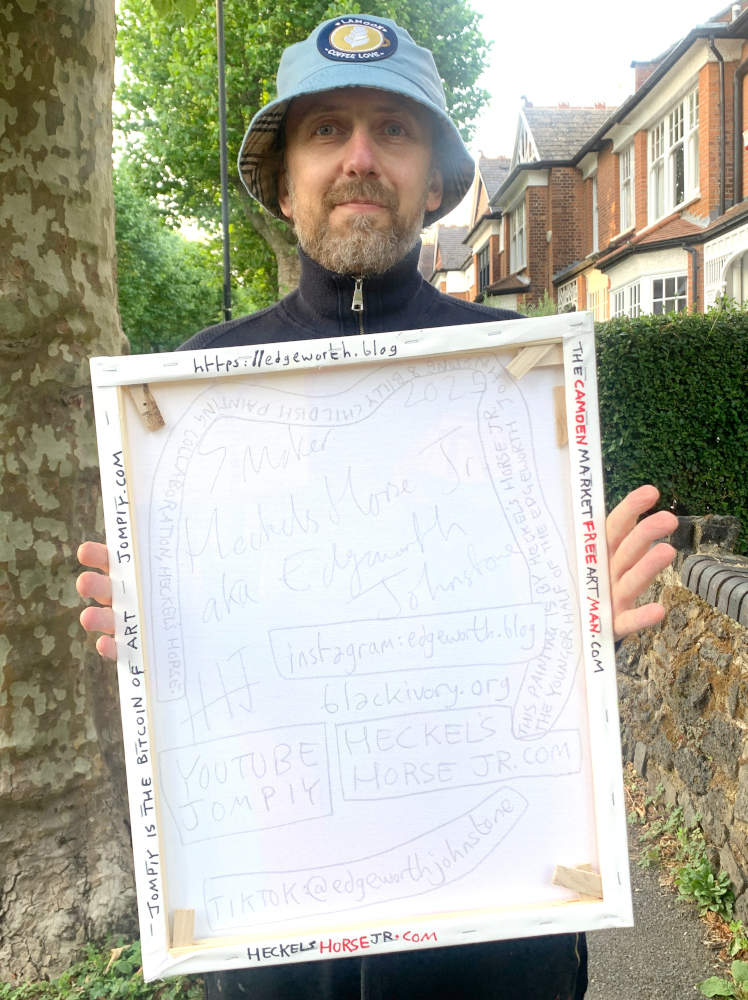 LAMOON
COFFEE LOVE
https://edgeworth.blog
THE CAMDEN MARKET FREE ART MAN.COM
- JOMPIY IS THE BITCOIN OF ART - JOMPIY.COM
HECKELS HORSE JR.COM
PAINTING COLLABORATION HECKEL'S HORSE.
& BILLY CHILDISH
2022
7 Maker
Heckels Horse Jr.
aka Edgeworth
Johnstone
THIS PAINTING IS BY HECKELS HORSE JR.
THE YOUNGER HALF OF THE EDGEWORTH JOHNSTONE
instagram: edgeworth.blog
HJ
blackivory.org
YOUTUBE
JOMPIY
HECKEL'S
HORSE JR.COM
TIKTOK: @edgeworthjohnstone